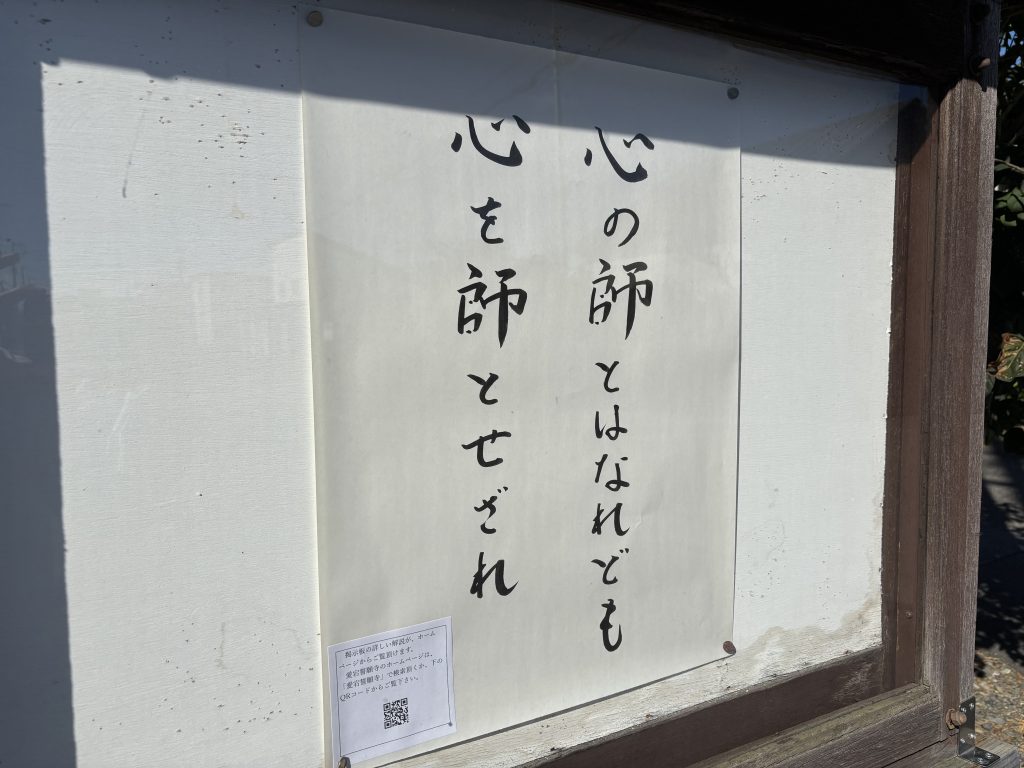 心の師とはなれども
心を師とせざれ
掲示板の詳しい解説が、ホーム
ページからご覧頂けます。
愛宕誓願寺のホームページは、
「愛宕誓願寺」で検索頂くか、下の
QRコードからご覧下さい。